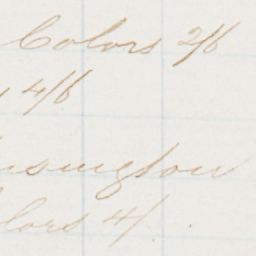 Colors 2/6
4/6
nsington
olors 4/.